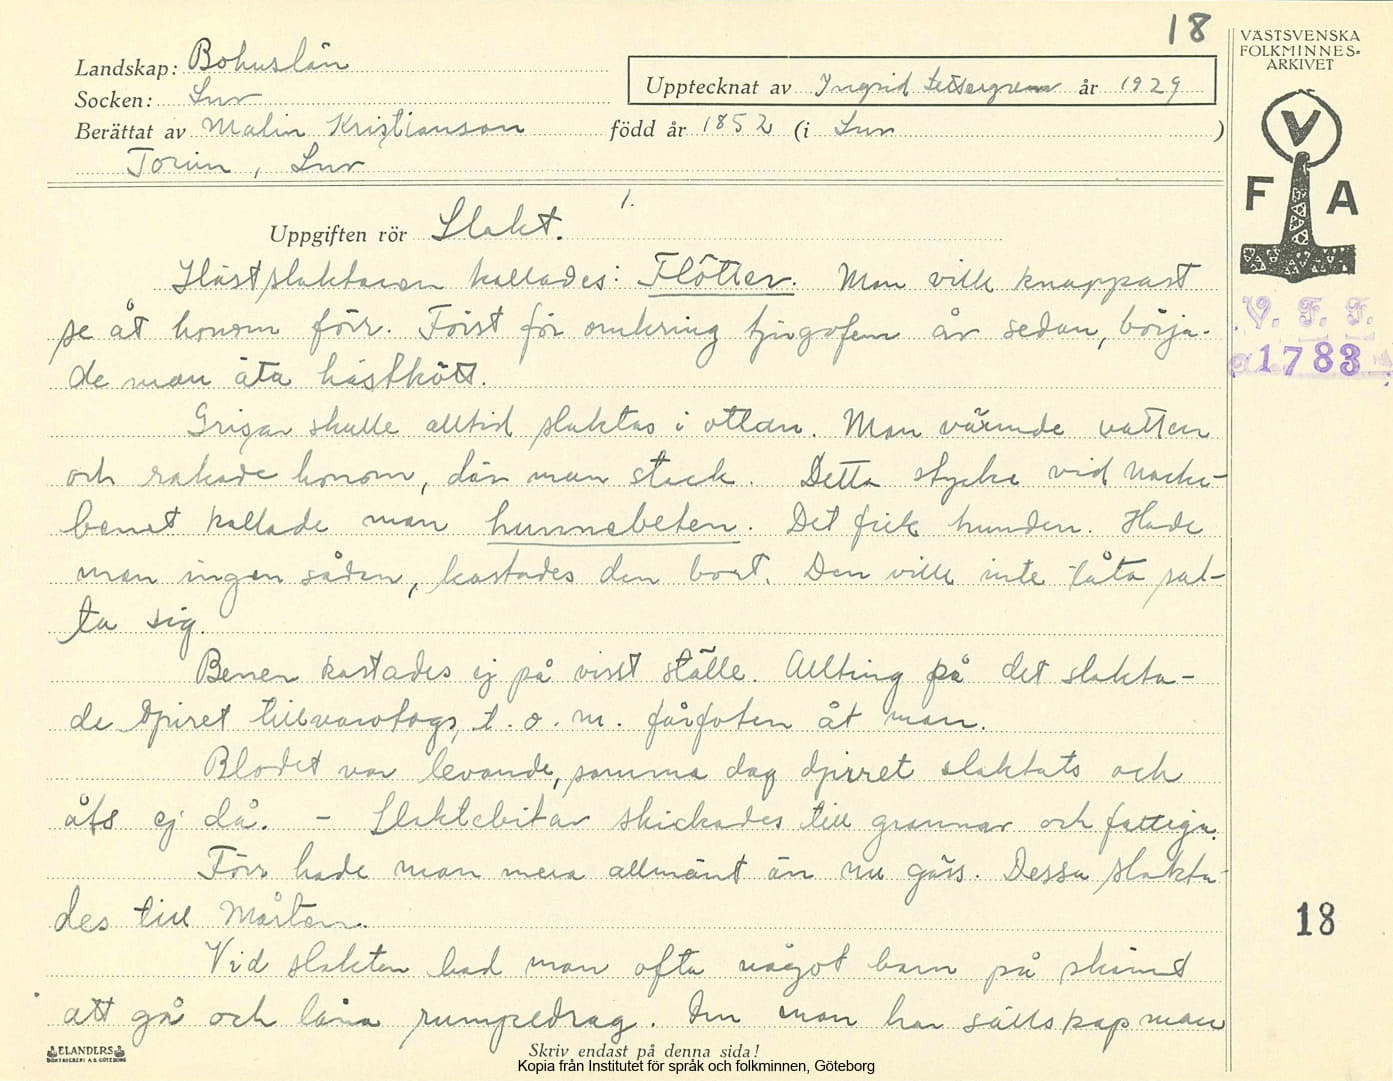 18
VÄSTSVENSKA
FOLKMINNES-
ARKIVET
Landskap: Bohuslän
Upptecknat av Ingrid år 1929
Socken: Lur
Berättat av Malin Kristianson född år 1852 (i Lur )
Torum, Lur
V
F A
1.
Uppgiften rör Slakt.
Hästslaktaren kallades: Flötter. Man ville knappast
se åt honom förr. Först för omkring tjugofem år sedan, börja-
de man äta hästkött.
V. F. F.
1783
Grisar skulle alltid slaktas i ottan. Man värmde vatten
och rakade honom, där man stack. Detta stycke vid nacke-
benet kallade man hunnebeten. Det fick hunden. Hade
man ingen sådan, kastades den bort. Den ville inte låta sal-
ta sig.
Benen kastades ej på visst ställe. Allting på det slakta-
de djuret tillvaratogs, t.o.m. fårfoten åt man.
Blodet var levande, samma dag djurret slaktats och
åts ej då. - Slaktebitar skickades till grannar och fattiga.
Förr hade man mera allmänt än nu gäss. Dessa slakta-
des till Mårten.
18
Vid slakten bad man ofta något barn på skämt
att gå och låna rumpedrag. Om man har sällskap man
ELANDERS
Skriv endast på denna sida!
Kopia från Institutet för språk och folkminnen, Göteborg